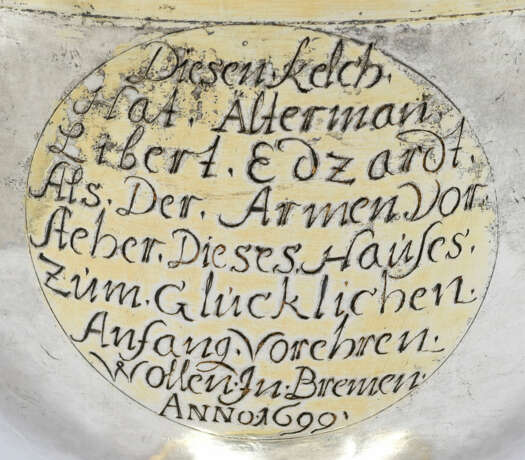 Diesen. Kelch.
Hat. Alterman.
Libert. Edzardt.
Als. Der. Armen. Vor.
steher. Dieses. Hauses.
Zum. Glücklichen.
Anfang. Vorehren.
Wollen. Jn. Bremen.
ANNO. 1699.